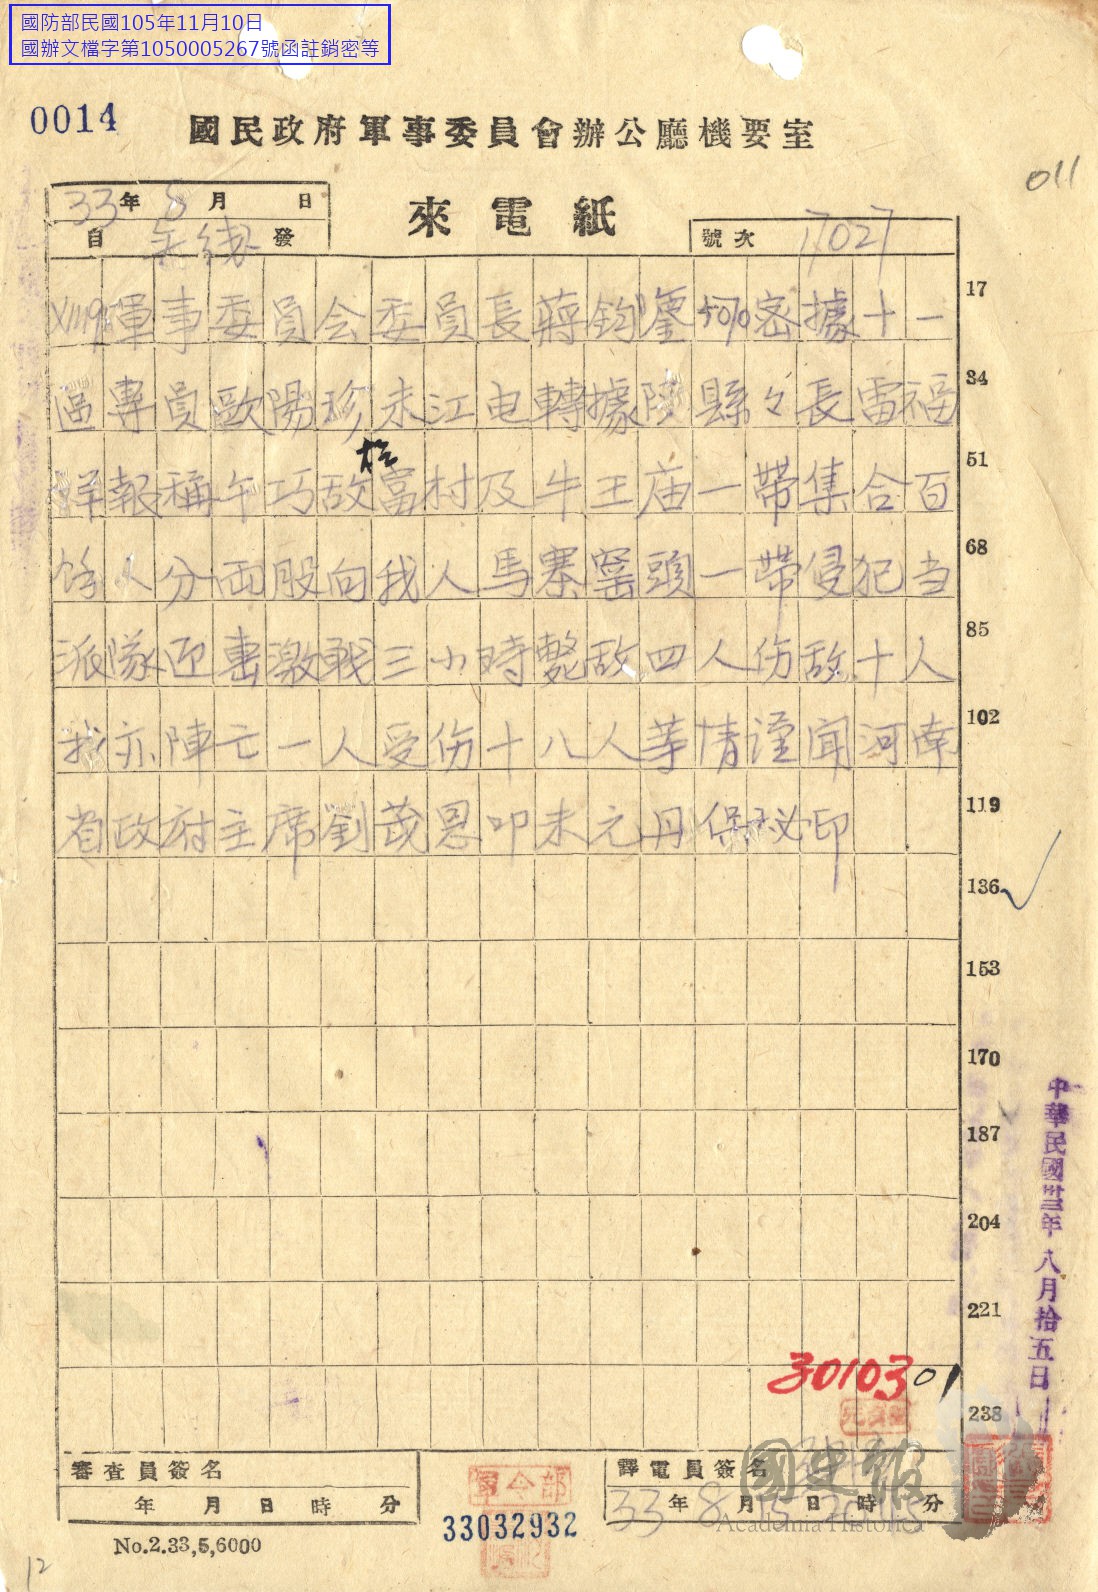 國防部民國105年11月10日
國辦文檔字第1050005267號函註銷密等
0014
國民政府軍事委員會辦公廳機要室
011
33年8月 日
來電紙
自 發
號次 17027
軍事委員会委員長蔣鈞鑒 密據十一
17
區專員歐陽珍未江电轉據陝縣々長雷福
34
祥報稱午巧敌富村及牛王庙一帶集合百
51
馀人分両股向我人馬寨窰頭一帶侵犯当
68
派隊迎击激戰三小時斃敌四人伤敌十人
85
我亦陣亡一人受伤十八人等情谨闻河南
102
省政府主席劉茂恩叩未元丹保秘印
119
136
153
170
187
204
221
238
中華民國卅三年八月拾五日
3010301
審查員簽名
年 月 日 時 分
軍令部
33032932
譯電員簽名
33年8月15日20時15分
國史館
Academia Historica
No.2.33,5,6000
12